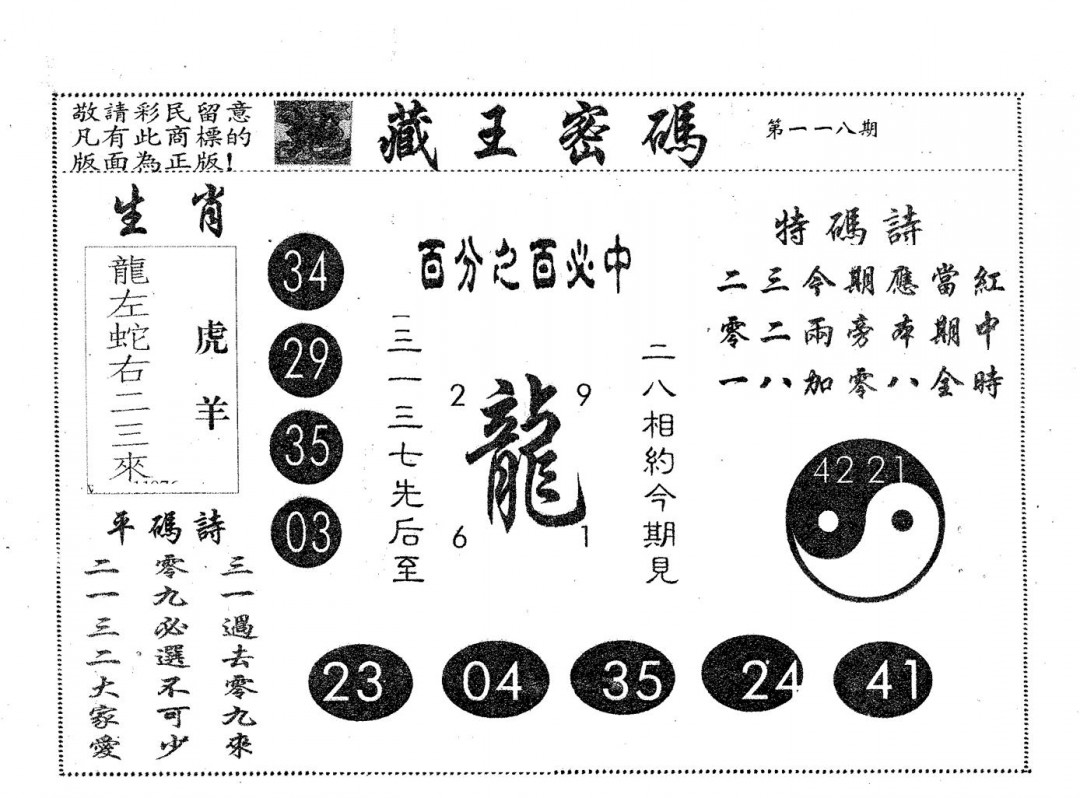 敬請彩民留意
凡有此商標的
版面為正版!
地藏王密碼
第一一八期
生肖
龍左蛇右二三來
虎羊
34
29
35
03
百分之百必中
三一三七先后至
2
9
龍
6
1
二八相約今期見
特碼詩
二三今期應當紅
零二兩旁本期中
一八加零八全時
42 21
平碼詩
三一過去零九來
零九必選不可少
二一三二大家愛
23
04
35
24
41